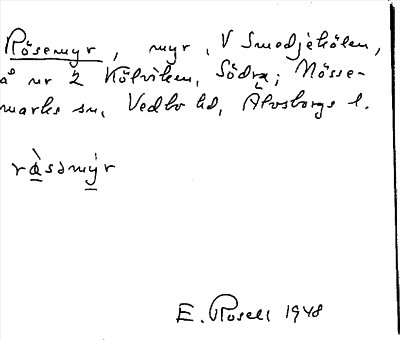 Rösemyr, myr, V Smedjekölen,
å nr 2 Kölviken, Södra; Nösse-
marks sn, Vedbo hd, Älvsborgs l.
rὰsəmýr
E. Rosell 1948